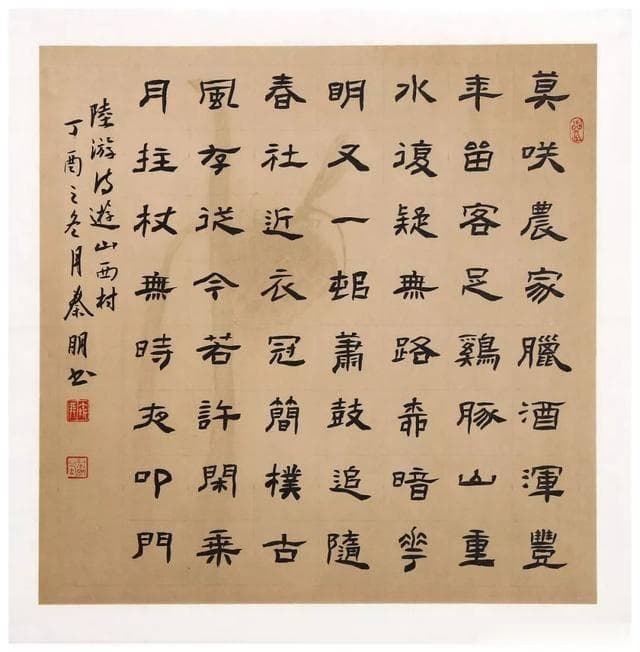 莫咲農家臘酒渾豐
年留客足鷄豚山重
水復疑無路柳暗花
明又一邨蕭鼓追隨
春社近衣冠簡樸古
風存從今若許閑乘
月拄杖無時夜叩門
陸游诗遊山西村
丁酉之冬月秦明书